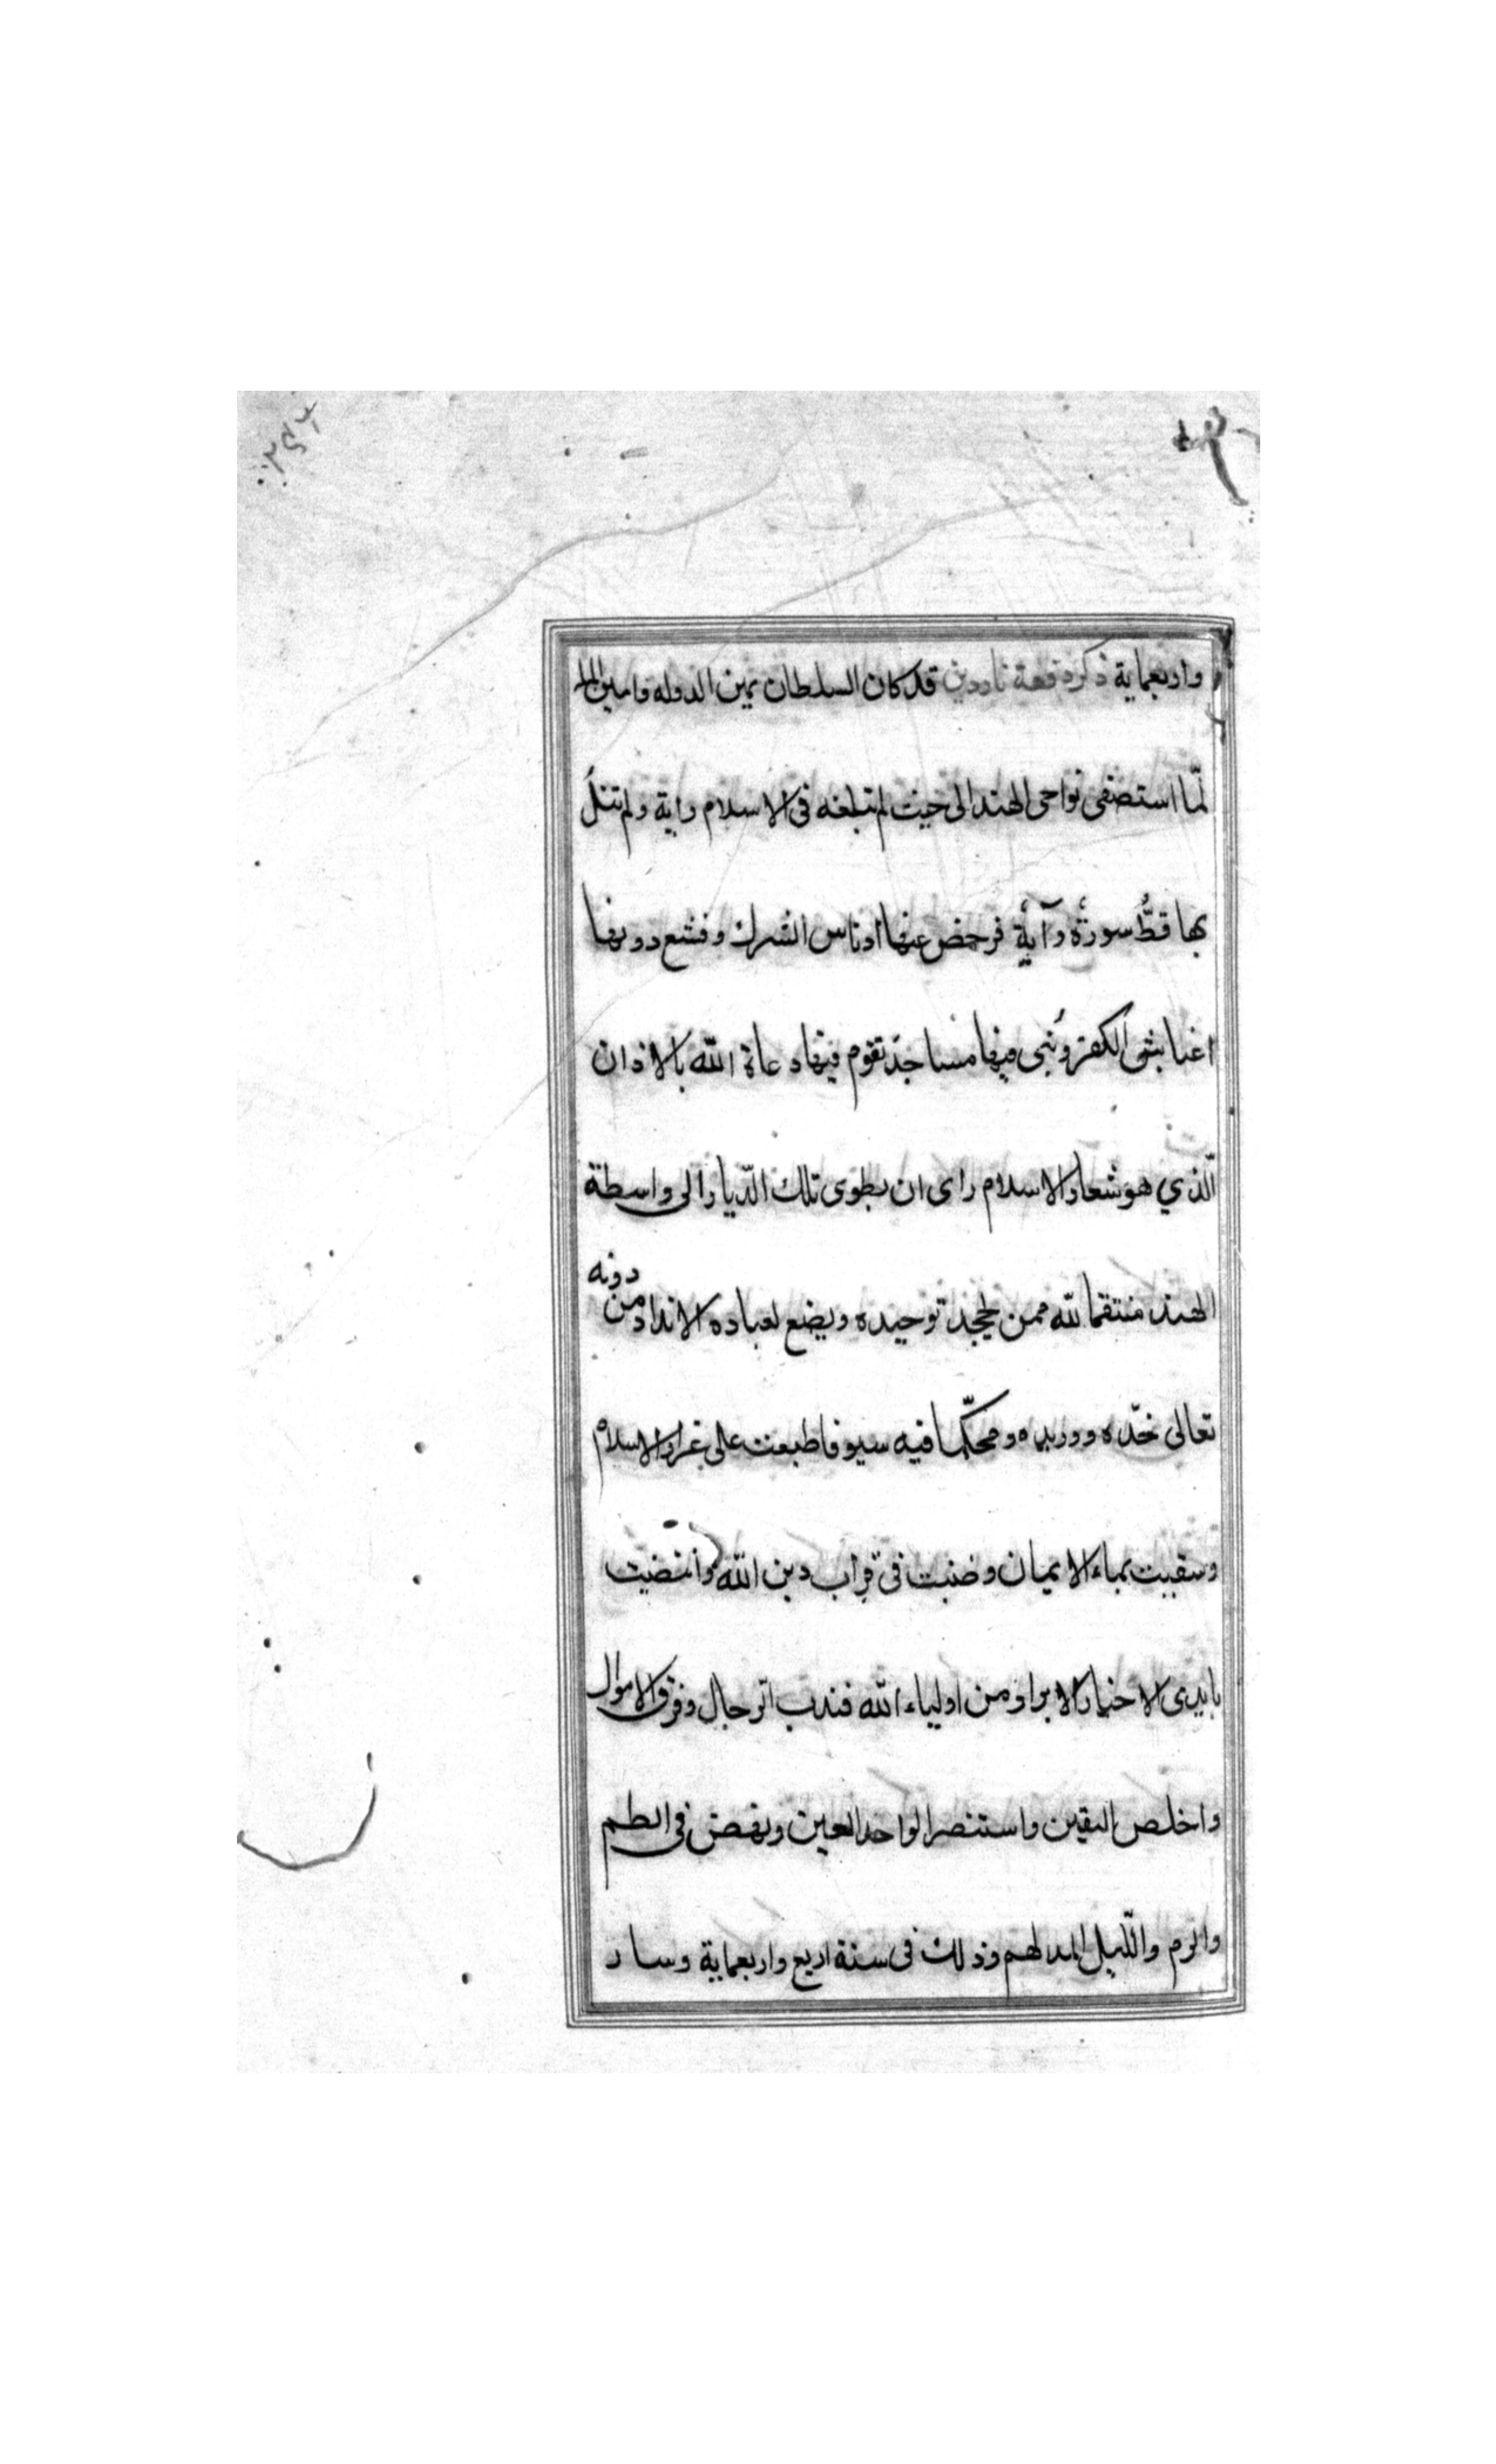 واربعماية ذكره قصة ناردين قد كان السلطان يمين الدوله وامين الملة
لمّا استصفى نواحى الهند الى حيث لم تبلغه فى الاسلام راية ولم تتلُ
بها قطُّ سورةٌ وآيةٌ فرحض عنها ادناس الشرك وقشع دونها
اغباش الكفر وبُنى فيها مساجدَ تقوم فيها دعاة الله بالاذان
الّذي هو شعار الاسلام راى ان يطوى تلك الدّيار الى واسطة
الهند منتقما لله ممن يجحد توحيده ويضع لعباده الانداد من دونه
تعالى خدّه ووريده ومحكّما فيه سيوفا طبعت على غرار الاسلام
وسقيت بماء الايمان وضنبت فى قراب دين الله وانتضيت
بايدى الاخيار الابرار من اولياء الله فندب الرجال وفرق الاموال
واخلص اليقين واستنصر الواحد المعين ونهض فى الطم
والرم والّليل المدلهم وذلك فى سنة اربع واربعماية وسار